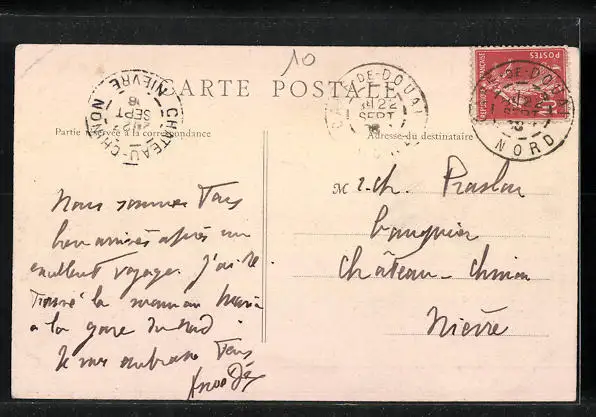 10
CARTE POSTALE
CHATEAU-CHINON
NIÈVRE
SEPT
Gᴱ-DE-DOUAI
22
SEPT
NORD
RÉPUBLIQUE FRANÇAISE
POSTES
10
Partie réservée à la correspondance
Adresse du destinataire
Nous sommes Tous
bien arrivés après un
excellent voyage. J'ai re
Trouvé la maman
à la gare du nord
Je vous embrasse Tous
Mr. Ch.
banquier
Château-Chinon
Nièvre